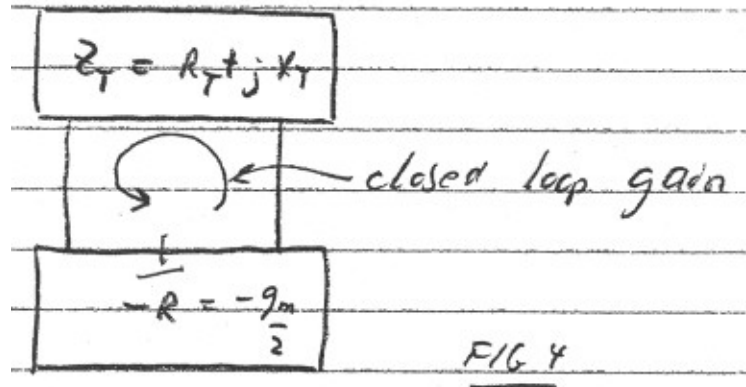 Z_T = R_T + j X_T
closed loop gain
1
-R = -g_m
2
FIG 4